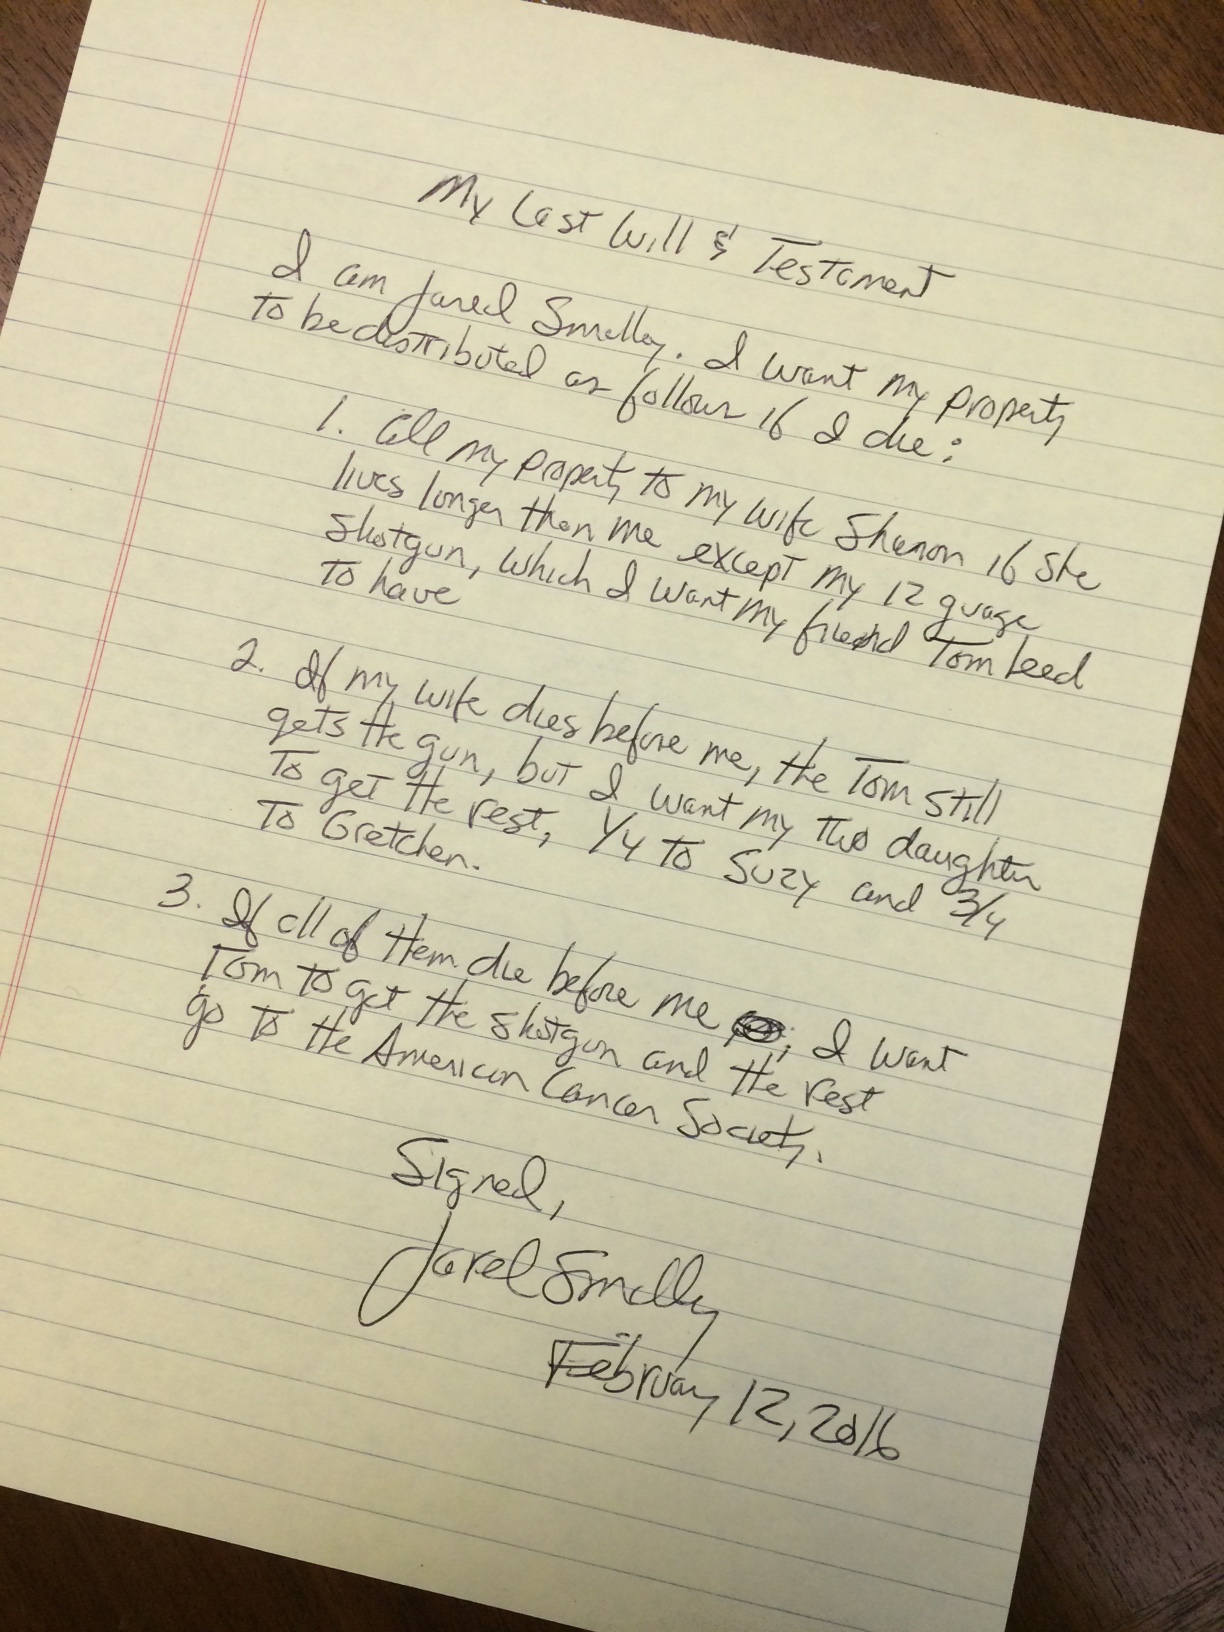 My Last Will & Testament
I am Jared Smalley. I want my property
to be distributed as follows if I die:
1. All my property to my wife Shanon if she
lives longer than me except my 12 guage
shotgun, which I want my friend Tom Leed
to have
2. If my wife dies before me, the Tom still
gets the gun, but I want my two daughter
to get the rest, 1/4 to Suzy and 3/4
to Gretchen.
3. If all of them die before me ; I want
Tom to get the shotgun and the rest
go to the American Cancer Society.
Signed,
Jared Smalley
February 12, 2016